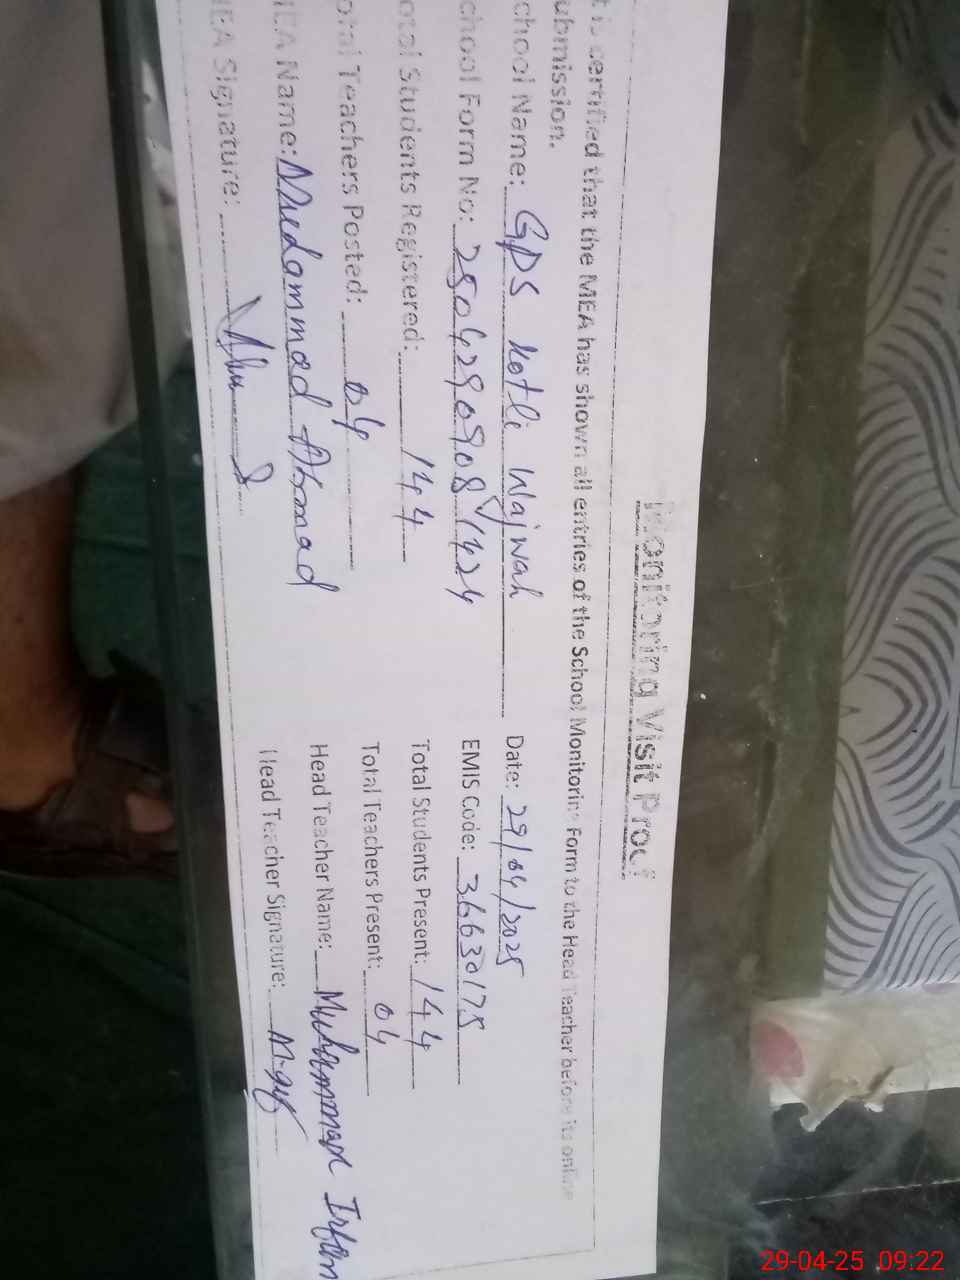 Monitoring Visit Proof
t is certified that the MEA has shown all entries of the School Monitoring Form to the Head Teacher before its online
ubmission.
chool Name: GPS Kotli Wajwah Date: 29/04/2025
chool Form No: 250429 0908 1424 EMIS Code: 36630175
otal Students Registered: 144 Total Students Present: 144
otal Teachers Posted: 04 Total Teachers Present: 04
MEA Name: Muhammad Ahmad Head Teacher Name: Muhammad Irfan
MEA Signature: Head Teacher Signature:
29-04-25 09:22